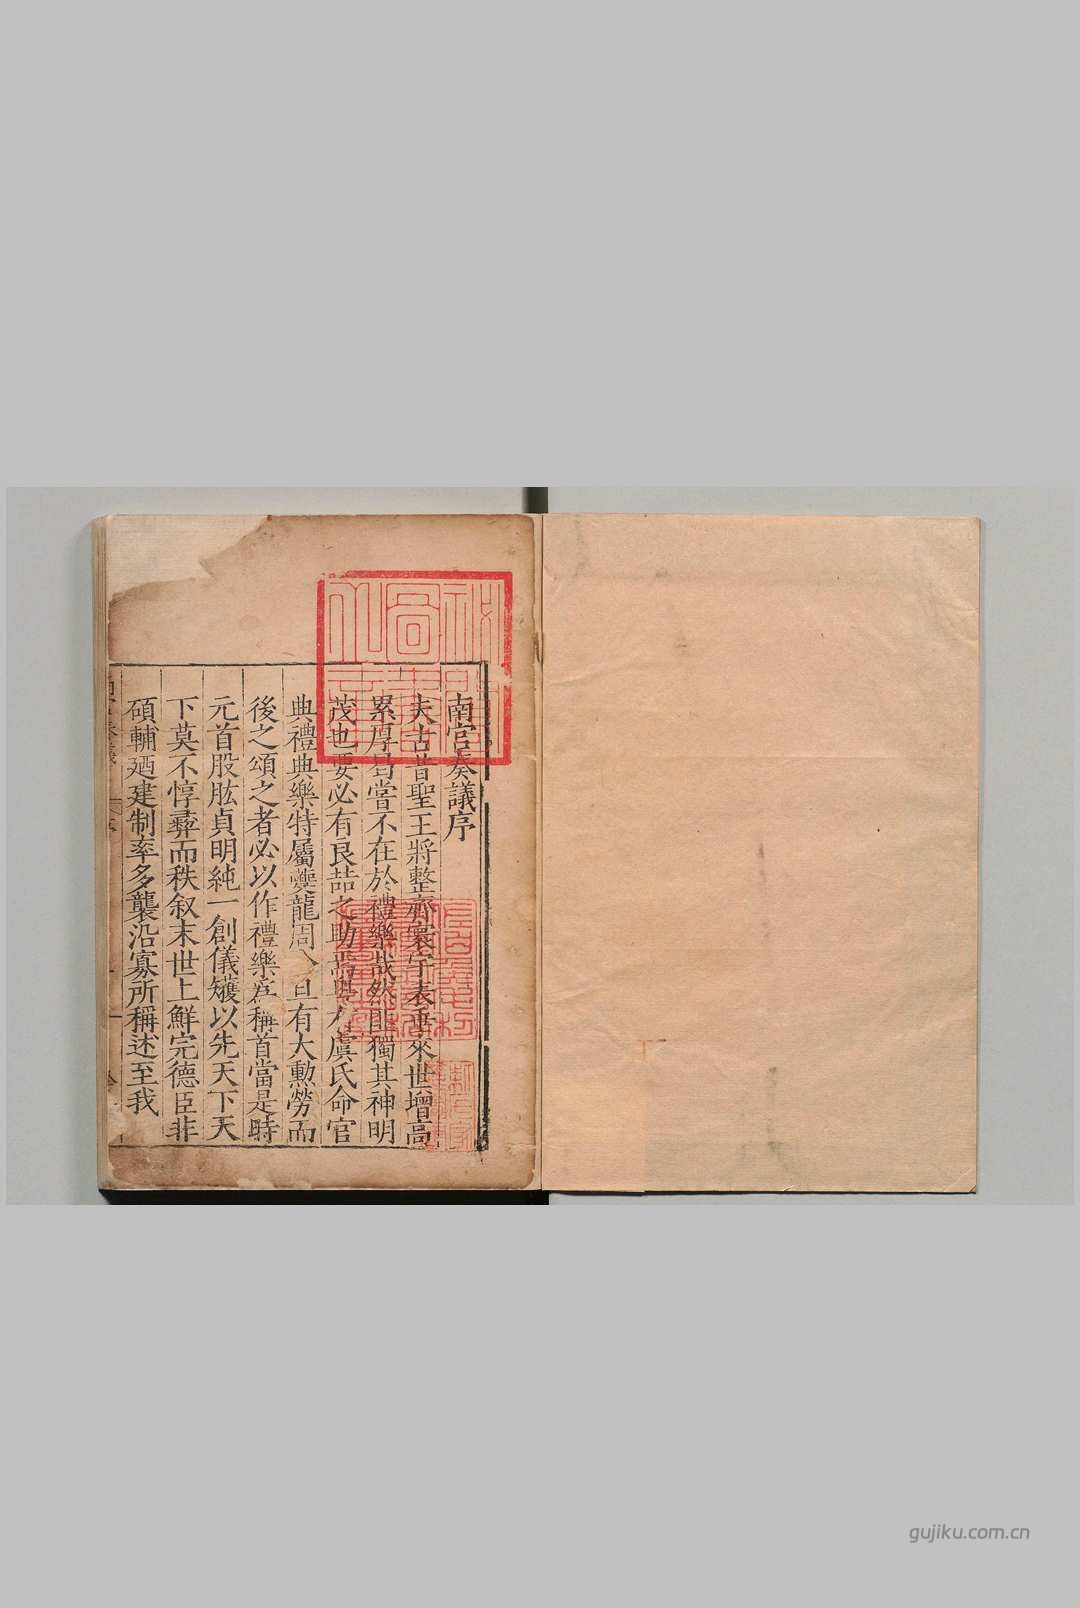 南宮奏議序
夫古昔聖王將整齊寰宇表垂來世增高
累厚曷嘗不在於禮樂哉然非獨其神明
茂也要必有良喆之助焉與有虞氏命官
典禮典樂特屬夔龍周公旦有大勲勞而
後之頌之者必以作禮樂為稱首當是時
元首股肱貞明純一創儀矱以先天下天
下莫不惇彛而秩叙末世上鮮完德臣非
碩輔廼建制率多襲沿寡所稱述至我
gujiku.com.cn